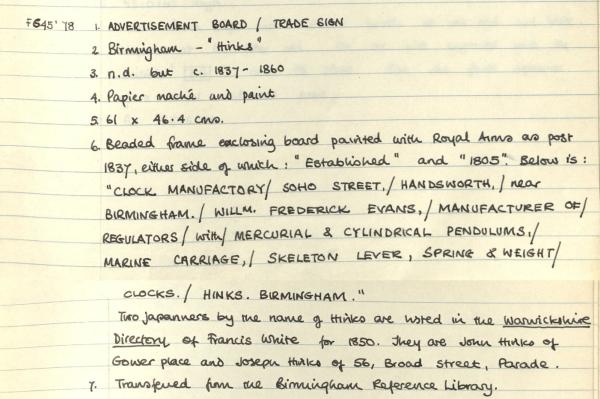 F645'78 1. ADVERTISEMENT BOARD / TRADE SIGN
2 Birmingham - "Hinks"
3. n.d. but c. 1837-1860
4. Papier maché and paint
5. 61 x 46.4 cms.
6. Beaded frame enclosing board painted with Royal Arms as post
1837, either side of which: "Established" and "1805". Below is:
"CLOCK MANUFACTORY/ SOHO STREET,/ HANDSWORTH,/ near
BIRMINGHAM./ WILLM. FREDERICK EVANS,/ MANUFACTURER OF/
REGULATORS/ with/ MERCURIAL & CYLINDRICAL PENDULUMS,/
MARINE CARRIAGE,/ SKELETON LEVER, SPRING & WEIGHT/
CLOCKS./ HINKS. BIRMINGHAM."
Two japanners by the name of Hinks are listed in the Warwickshire
Directory of Francis White for 1850. They are John Hinks of
Gower place and Joseph Hinks of 56, Broad Street, Parade.
7. Transferred from the Birmingham Reference Library.